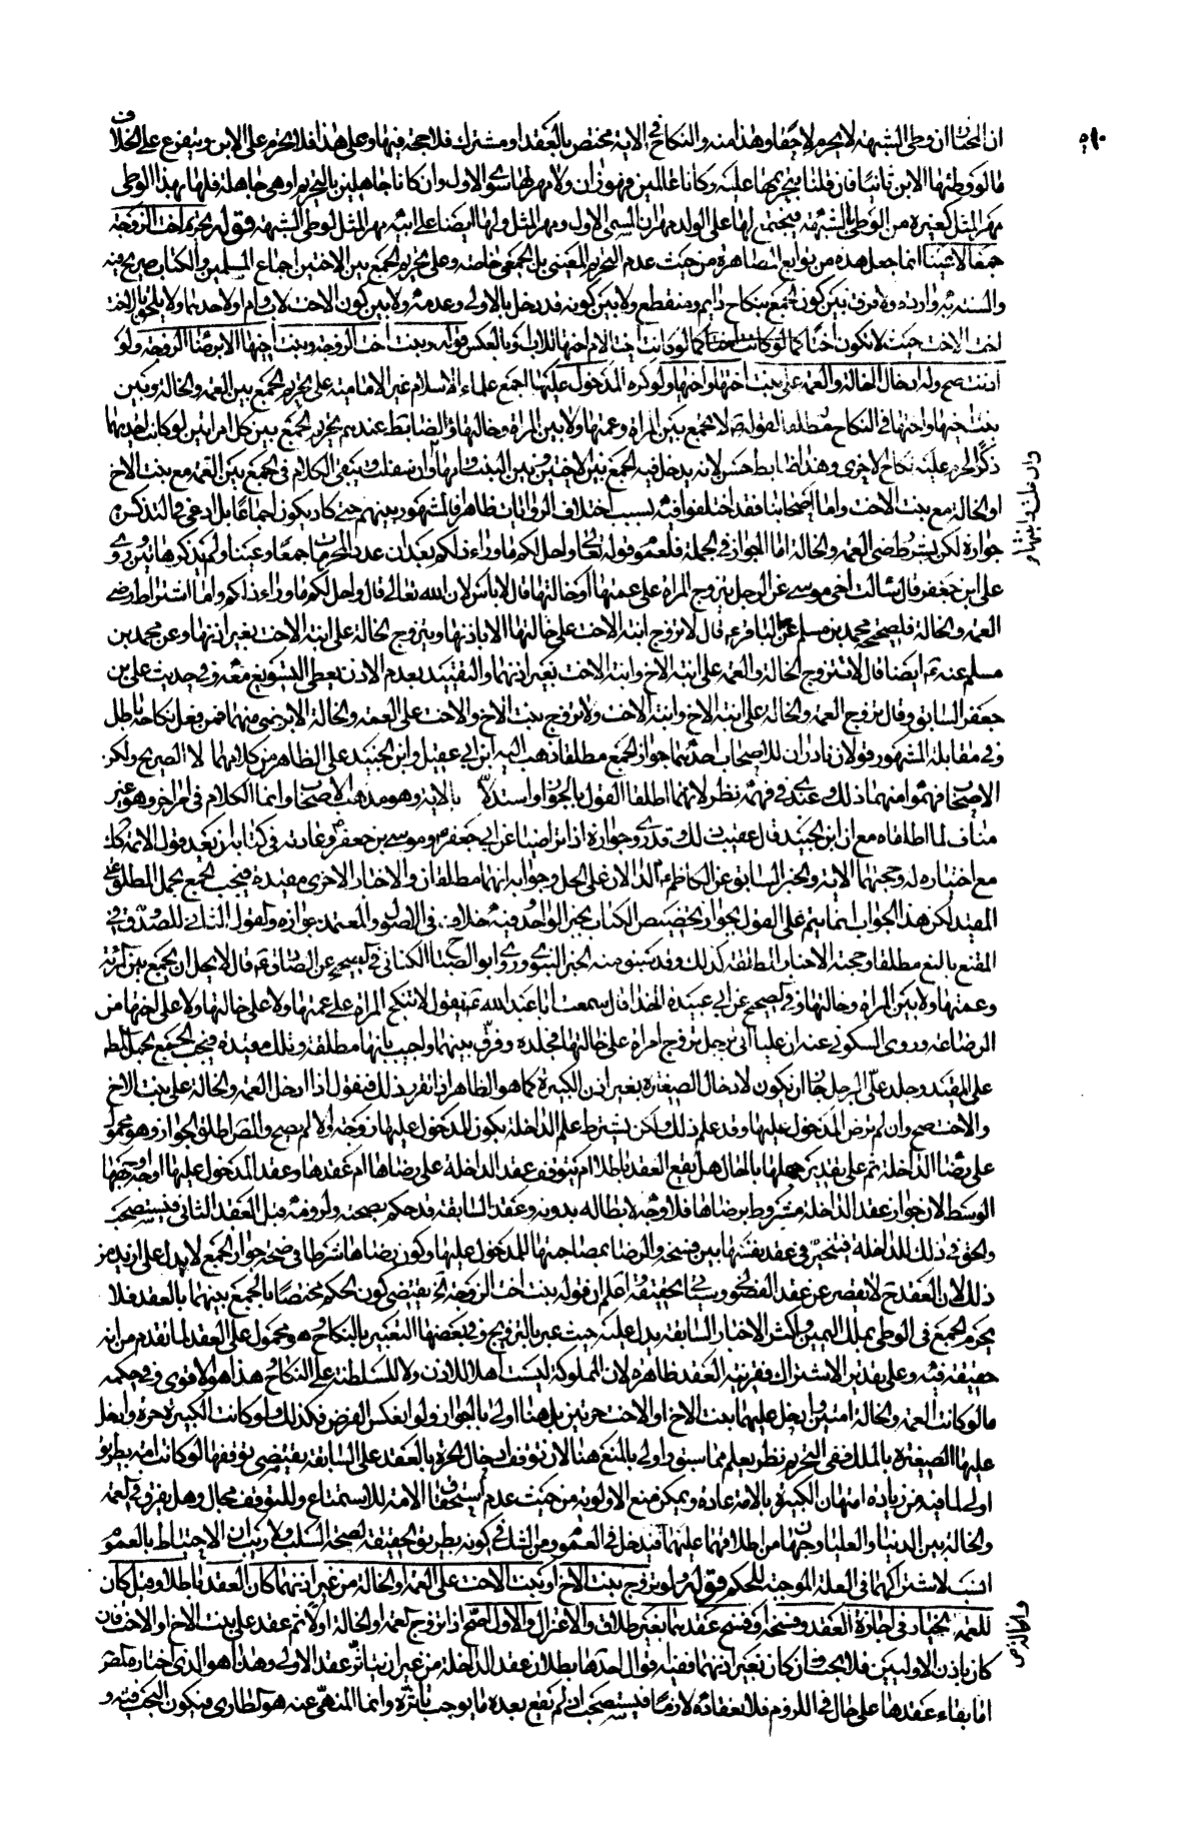 ان المختار ان وطى الشبهة لا يحرم لاحقا وهذا منه والنكاح فى الاية مختص بالعقد او مشترك فلا حجة فيها وعلى هذا فلا تحرم على الابن ويتفرع على الخلاف
ما لو وطئها الابن ثانيا فان قلنا بتحريمها عليه وكانا عالمين فهو زان ولا مهر لها سوى الاول وان كانا جاهلين بالتحريم او هى جاهلة فلها بهذا الوطى
مهر المثل كغيره من الوطى بالشبهة فيجتمع لها على الولد مهران المسمى الاول ومهر المثل ولها ايضا على ابيه مهر المثل لوطى الشبهة قوله تحرم اخت الزوجة
جمعا لا عينا انما جعل هذه من توابع المصاهرة من حيث عدم التحريم العينى بل الجمعى خاصة وعلى تحريم الجمع بين الاختين اجماع المسلمين والكتاب صريح فيه
والسنة به واردة ولا فرق بين كون الجمع بنكاح دايم ومنقطع ولا بين كونه قد دخل بالاولى وعدمه ولا بين كون الاخت لاب وام او لاحدهما ولا يلحق بالاخت
اخت الاخت حيث لا تكون اختا كما لو كانت اختها لام اختها للاب وبالعكس قوله وبنت اخت الزوجة وبنت اخيها الا برضا الزوجة ولو
اذنت صح وله ادخال الخالة والعمة على بنت اختها واخيها ولو كره المدخول عليها اجمع علماء الاسلام غير الامامية على تحريم الجمع بين العمة والخالة وبين
بنت اخيها واختها فى النكاح مطلقا لقوله ص لا تجمع بين المراة وعمتها ولا بين المراة وخالتها والضابط عندهم تحريم الجمع بين كل امراتين لو كان احديهما
ذكرا لحرم عليه نكاح الاخرى وهذا الضابط حسن لانه يدخل فيه الجمع بين الاختين وبين البنت وامها وان سفلت ويبقى الكلام فى الجمع بين العمة مع بنت الاخ
وان علت وابنتها و
او الخالة مع بنت الاخت واما اصحابنا فقد اختلفوا فيه بسبب اختلاف الروايات ظاهرا فالمشهور بينهم حتى كاد يكون اجماعا بل ادعى فى التذكرة
جوازه لكن بشرط رضى العمة والخالة اما الجواز فى الجملة فلعموم قوله تعالى واحل لكم ما وراء ذلكم بعد ان عدد المحرمات جمعا وعينا ولم يذكر هاتين وروى
على ابن جعفر قال سالت اخى موسى عن الرجل يتزوج المراة على عمتها او خالتها قال لا باس لان الله تعالى قال واحل لكم ما وراء ذلكم واما اشتراط رضى
العمة والخالة فلصحيحة محمد بن مسلم عن الباقر ع قال لا تزوج ابنة الاخت على خالتها الا باذنها ويتزوج الخالة على ابنة الاخت بغير اذنها وعن محمد بن
مسلم عنه ع ايضا قال لا تتزوج الخالة والعمة على ابنة الاخ وابنة الاخت بغير اذنهما والتقييد بعدم الاذن يعطى التسويغ معه وفى حديث على بن
جعفر السابق وقال تزوج العمة والخالة على ابنة الاخ وابنة الاخت ولا تزوج بنت الاخ والاخت على العمة والخالة الا برضى منهما فمن فعل نكاحه باطل
وفى مقابلة المشهور قولان نادران للاصحاب احدهما جواز الجمع مطلقا ذهب اليه ابن ابى عقيل وابن الجنيد على الظاهر من كلامهما لا الصريح ولكن
الاصحاب فهموا منهما ذلك وعندى فى فهمه نظر لانهما اطلقا القول بالجواز واستدلا بالاية وهو مذهب الاصحاب وانما الكلام فى امر اخر وهو غير
مناف لما اطلقاه مع ان ابن الجنيد قال عقيب ذلك وقد روى جوازه اذا تراضيا عن ابى جعفر وموسى بن جعفر وعادته فى كتابه ان بعد قول الائمة كذلك
مع اختياره له وحجتهما الاية والخبر السابق عن الكاظم ع الدالان على الحل وجوابه انهما مطلقان والاخبار الاخرى مقيدة فيجب الجمع بحمل المطلق على
المقيد لكن هذا الجواب انما يتم على القول بجواز تخصيص الكتاب بخبر الواحد وفيه خلاف فى الاصول والمعتمد جوازه والقول الثانى للصدوق فى
المقنع بالمنع مطلقا وحجته الاخبار المطلقة كذلك وقد سبق منه الخبر النبوى وروى ابو الصباح الكنانى فى الصحيح عن الصادق ع قال لا يحل ان يجمع بين المراة
وعمتها ولا بين المراة وخالتها وفى الصحيح عن ابى عبيدة الحذا قال سمعت ابا عبد الله ع يقول لا تنكح المراة على عمتها ولا على خالتها ولا على اختها من
الرضاعة وروى السكونى عنه ان عليا اتى برجل تزوج امراة على خالتها فجلده وفرق بينهما واجيب بانها مطلقة وتلك مقيدة فيجب الجمع بحمل المطلق
على المقيد وجلد على الرجل جاز ان يكون لادخال الصغيرة بغير اذن الكبيرة كما هو الظاهر اذا تقرر ذلك فنقول اذا ادخل العمة والخالة على بنت الاخ
والاخت صح وان لم ترض المدخول عليها وقد علم ذلك ولكن يشترط علم الداخلة بكون المدخول عليها زوجة والا لم يصح والمص اطلق الجواز وهو محمول
على رضا الداخلة ثم على تقدير جهلها بالحال هل يقع العقد باطلا ام يتوقف عقد الداخلة على رضاها ام عقدها وعقد المدخول عليها اوجه اوجهها
الوسط لان جواز عقد الداخلة مشروط برضاها فلا وجه لابطاله بدونه وعقد السابقة قد حكم بصحته ولزومه قبل العقد الثانى فيستصحب
والحق فى ذلك للداخلة فتتخير فى عقد نفسها بين فسخه والرضا بمصاحبتها للمدخول عليها وكون رضاها شرطا فى صحة جواز الجمع لا يدل على ازيد من
ذلك لان العقد ح لا يقصر عن عقد الفضولى وسياتى تحقيقه اعلم ان قوله بنت اخت الزوجة الخ يقتضى كون الحكم مختصا بالجمع بينهما بالعقد فلا
يحرم الجمع فى الوطى بملك اليمين واكثر الاخبار السابقة يدل عليه حيث عبر بالتزويج وفى بعضها التعبير بالنكاح وهو محمول على العقد لما تقدم من انه
حقيقة فيه وعلى تقدير الاشتراك فقرينة العقد ظاهرة لان المملوكة ليست اهلا للاذن ولا للسلطنة على النكاح هذا هو الاقوى وفى حكمه
ما لو كانت العمة والخالة امتين وادخل عليهما بنت الاخ او الاخت حرتين بل هنا اولى بالجواز ولو انعكس الفرض فكذلك ولو كانت الكبيرة حرة وادخل
عليها الصغيرة بالملك ففى التحريم نظر يعلم مما سبق واولى بالمنع هنا لان توقف ادخال الحرة بالعقد على السابقة يقتضى توقفها لو كانت امة بطريق
اولى لما فيه من زيادة امتهان الكبيرة بالامة عادة ويمكن منع الاولوية من حيث عدم استحقاق الامة للاستمتاع وللتوقف مجال وهل يفرق فى العمة
والخالة بين الدنيا والعليا وجهان من اطلاقهما عليهما فيدخل فى العموم ومن الشك فى كونه بطريق الحقيقة لصحة السلب ولا ريب ان الاحتياط بالعموم
انسب لاشتراكهما فى العلة الموجبة للحكم قوله ولو تزوج بنت الاخ او بنت الاخت على العمة او الخالة من غير اذنهما كان العقد باطلا وقيل كان
للعمة والخالة الخيار فى اجازة العقد وفسخه او فسخ عقدهما بغير طلاق والاعتزال والاول اصح اذا تزوج العمة او الخالة اولا ثم عقد على بنت الاخ او الاخت فان
كان باذن الاوليين فلا بحث وان كان بغير اذنهما ففيه اقوال احدها بطلان عقد الداخلة من غير ان يتاثر عقد الاولى وهذا هو الذى اختاره المص
اما بقاء عقدها على حاله فى اللزوم فلانعقاده لازما فيستصحب اذ لم يقع بعده ما يوجب تاثره وانما المنهى عنه هو الطارى فيكون البحث فيه و